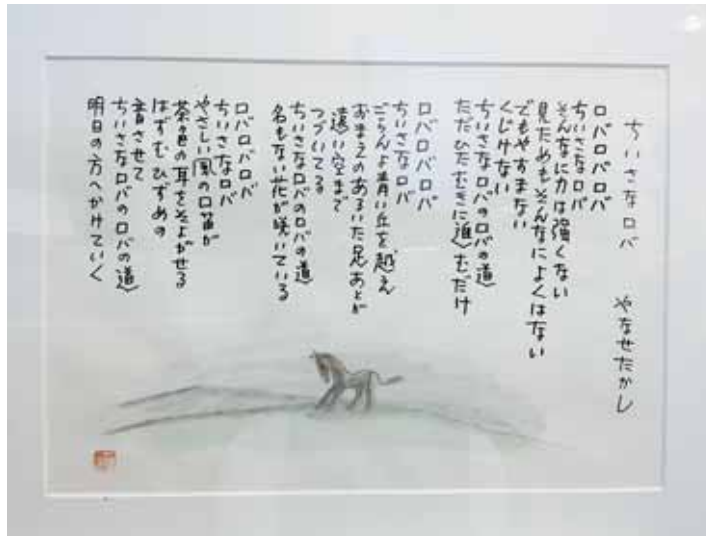 ちいさなロバ　やなせたかし
ロバロバロバ
ちいさなロバ
そんなに力は強くない
見ためもそんなによくはない
でもやすまない
くじけない
ちいさなロバのロバの道
ただひたむきに進むだけ
ロバロバロバ
ちいさなロバ
ごらんよ青い丘を越え
おまえのあるいた足あとが
遠い空まで
つづいてる
ちいさなロバのロバの道
名もない花が咲いている
ロバロバロバ
ちいさなロバ
やさしい風の口笛が
茶色の耳をそよがせる
はずむひずめの
音させて
ちいさなロバのロバの道
明日の方へかけていく